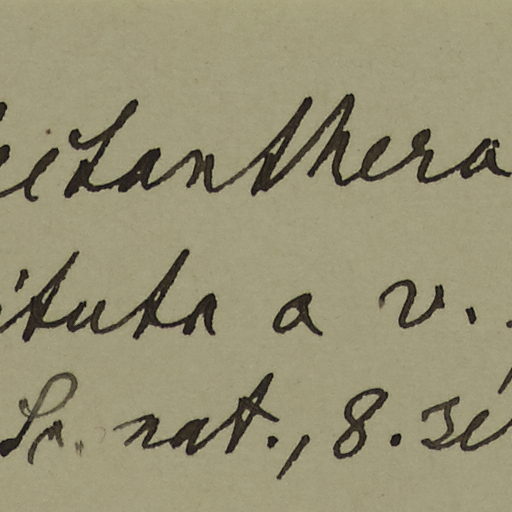 ectanthera
ituta a v.
Sc. nat., 8. sé